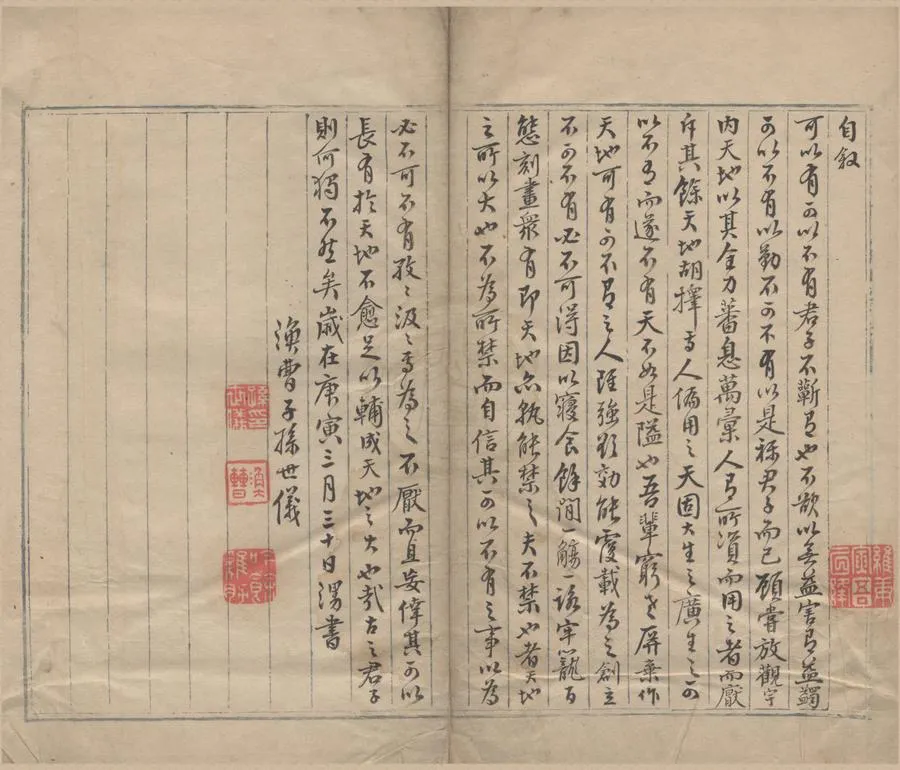 自敘
可以有可以不有君子不蘄有也不欲以無益害有益蠲
可以不有以勤不可不有以是稱君子而已顧嘗放觀宇
內天地以其全力蕃息萬彙人有所資而用之者而厭
斥其餘天地胡擇焉人偏用之天固大生之廣生之可
以不有而遂不有天不如是隘也吾輩窮老屏棄作
天地可有可不有之人雖強欲効能覆載為之創立
不可不有必不可得因以寢食餘間一觴一詠牢籠百
態刻畫眾有即天地亦孰能禁之夫不禁也者天地
之所以大也不為所禁而自信其可以不有之事以為
必不可不有孜〻汲〻焉為之不厭而且妄偉其可以
長有於天地不愈足以輔成天地之大也哉古之君子
則何獨不然矣歲在庚寅三月三十日漫書
漁曹子孫世儀
孫世儀印
漁曹